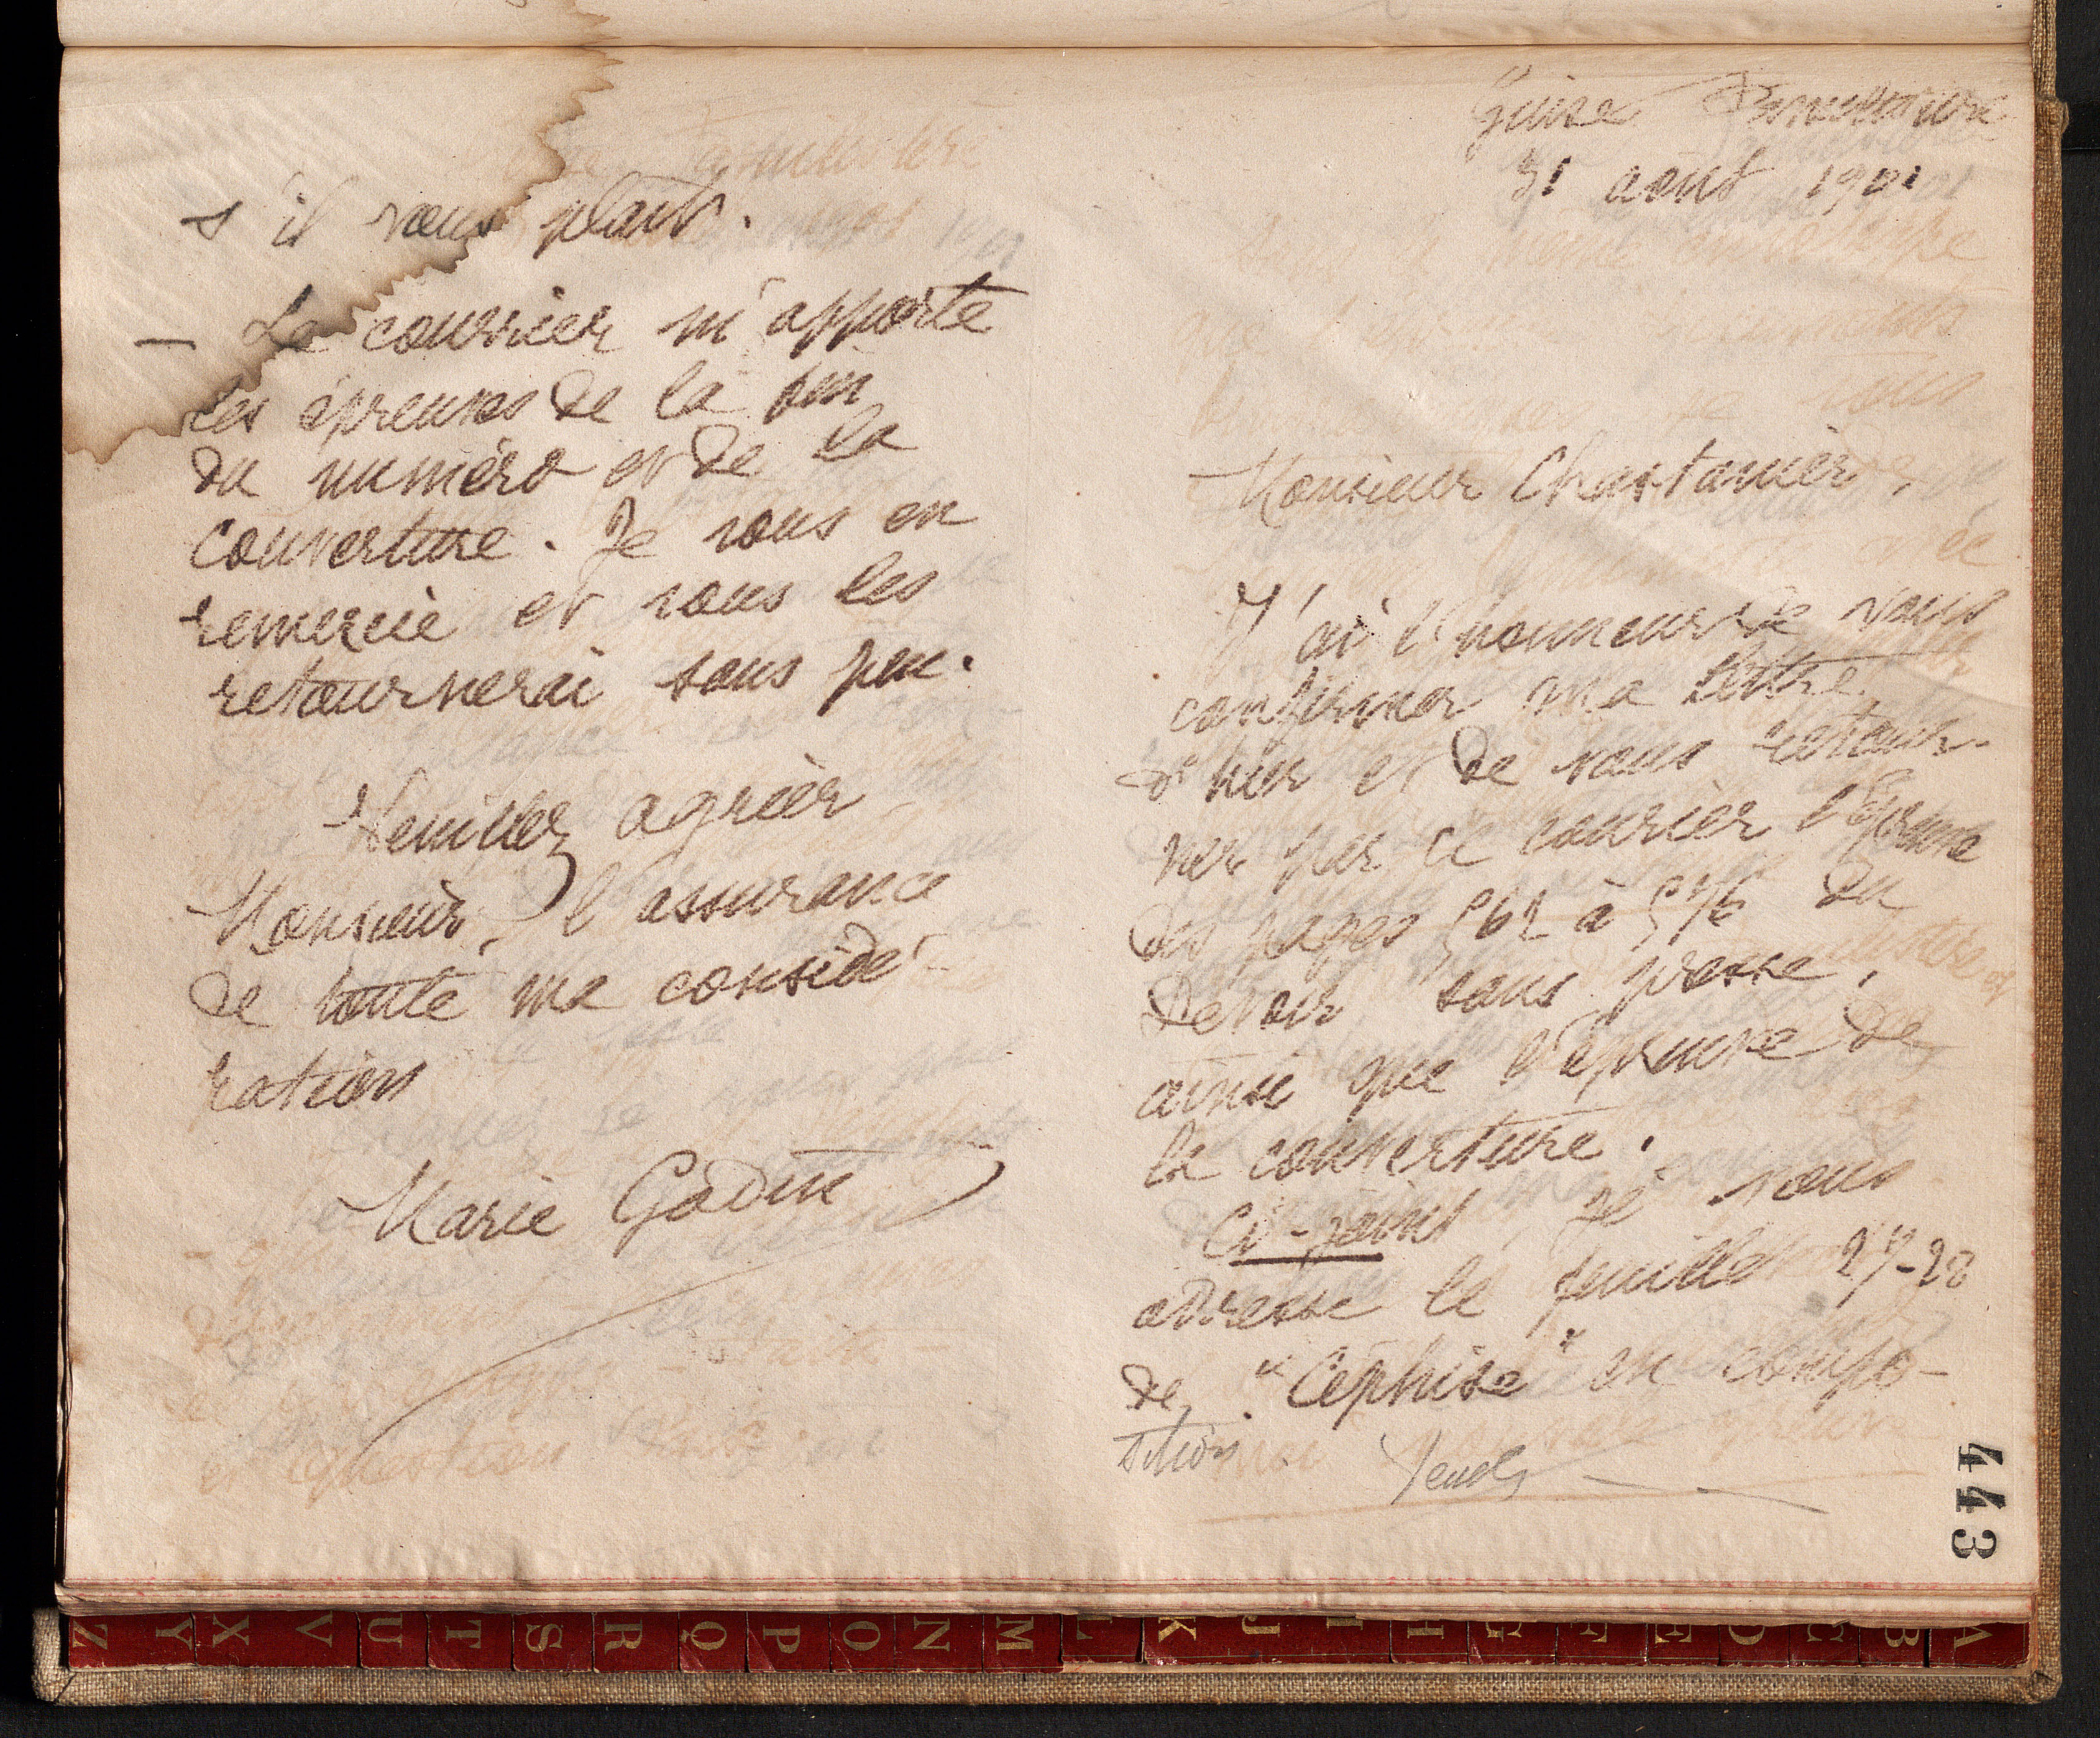 s'il vous plait.
— Le courrier m'apporte
les épreuves de la fin
du numéro et de la
couverture. Je vous en
remercie et vous les
retournerai sous peu.
Veuillez agréer
Monsieur, l'assurance
de toute ma considé-
ration
Marie Godin
Guise Familistère
31 août 1901
Monsieur Chastanier,
J'ai l'honneur de vous
confirmer ma lettre
d'hier et de vous retour-
ner par ce courrier l'épreuve
des pages 561 à 576 du
Devoir sous presse,
ainsi que l'épreuve de
la couverture.
Ci-joint, je vous
adresse le feuillet 27-28
de "Céphise" en compo-
sition.
443
Z Y X V U T S R Q P O N M L K J I H G F E D C B A